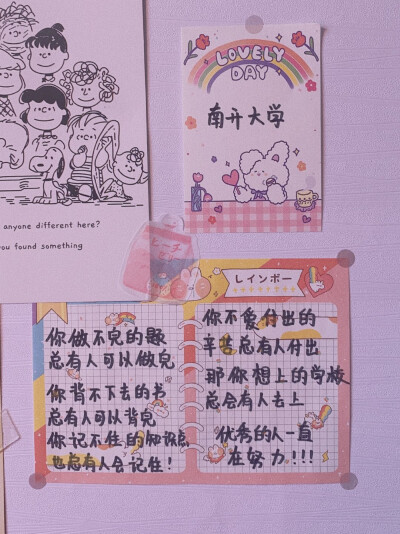 anyone different here?
you found something
LOVELY
DAY
南开大学
ピーチ
レインボー
你做不完的题
总有人可以做完
你背不下去的书
总有人可以背完
你记不住的知识点
也总有人会记住！
你不爱付出的
辛苦总有人付出
那你想上的学校
总会有人去上
优秀的人一直
在努力！！！